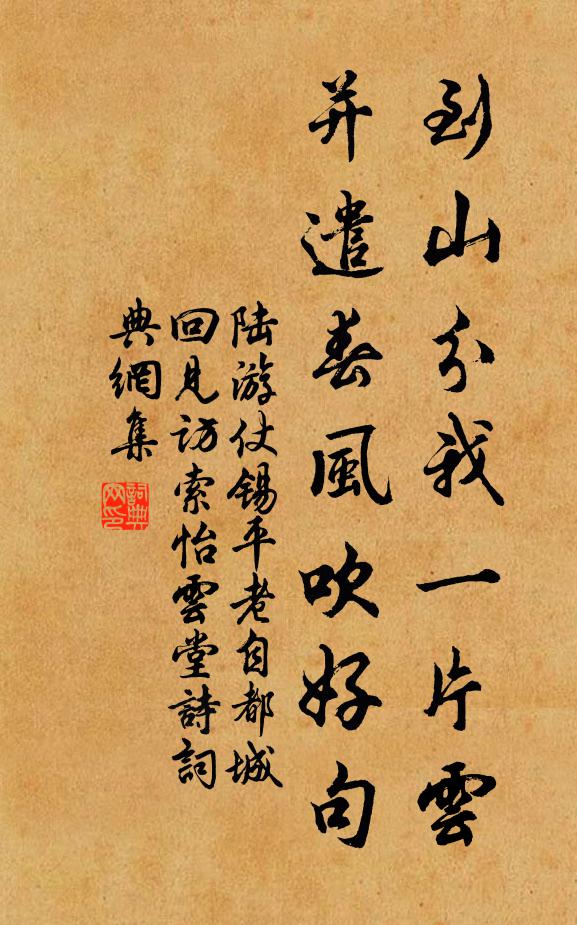 到山分我一片雲
并遣春風吹好句
陆游仗锡平老自都城
回見访索怡雲堂詩詞
典網集
詞典
网印